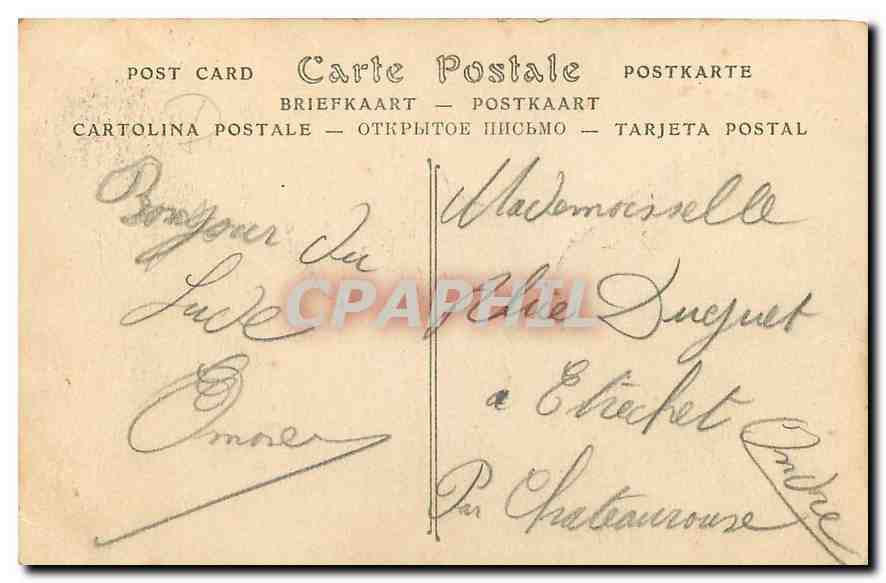 POST CARD Carte Postale POSTKARTE
BRIEFKAART — POSTKAART
CARTOLINA POSTALE — ОТКРЫТОЕ ПИСЬМО — TARJETA POSTAL
Bonjour du
Lude
Mademoisselle
Duguet
a Etrechet
Par Chateauroux
Indre
CPAPHIL